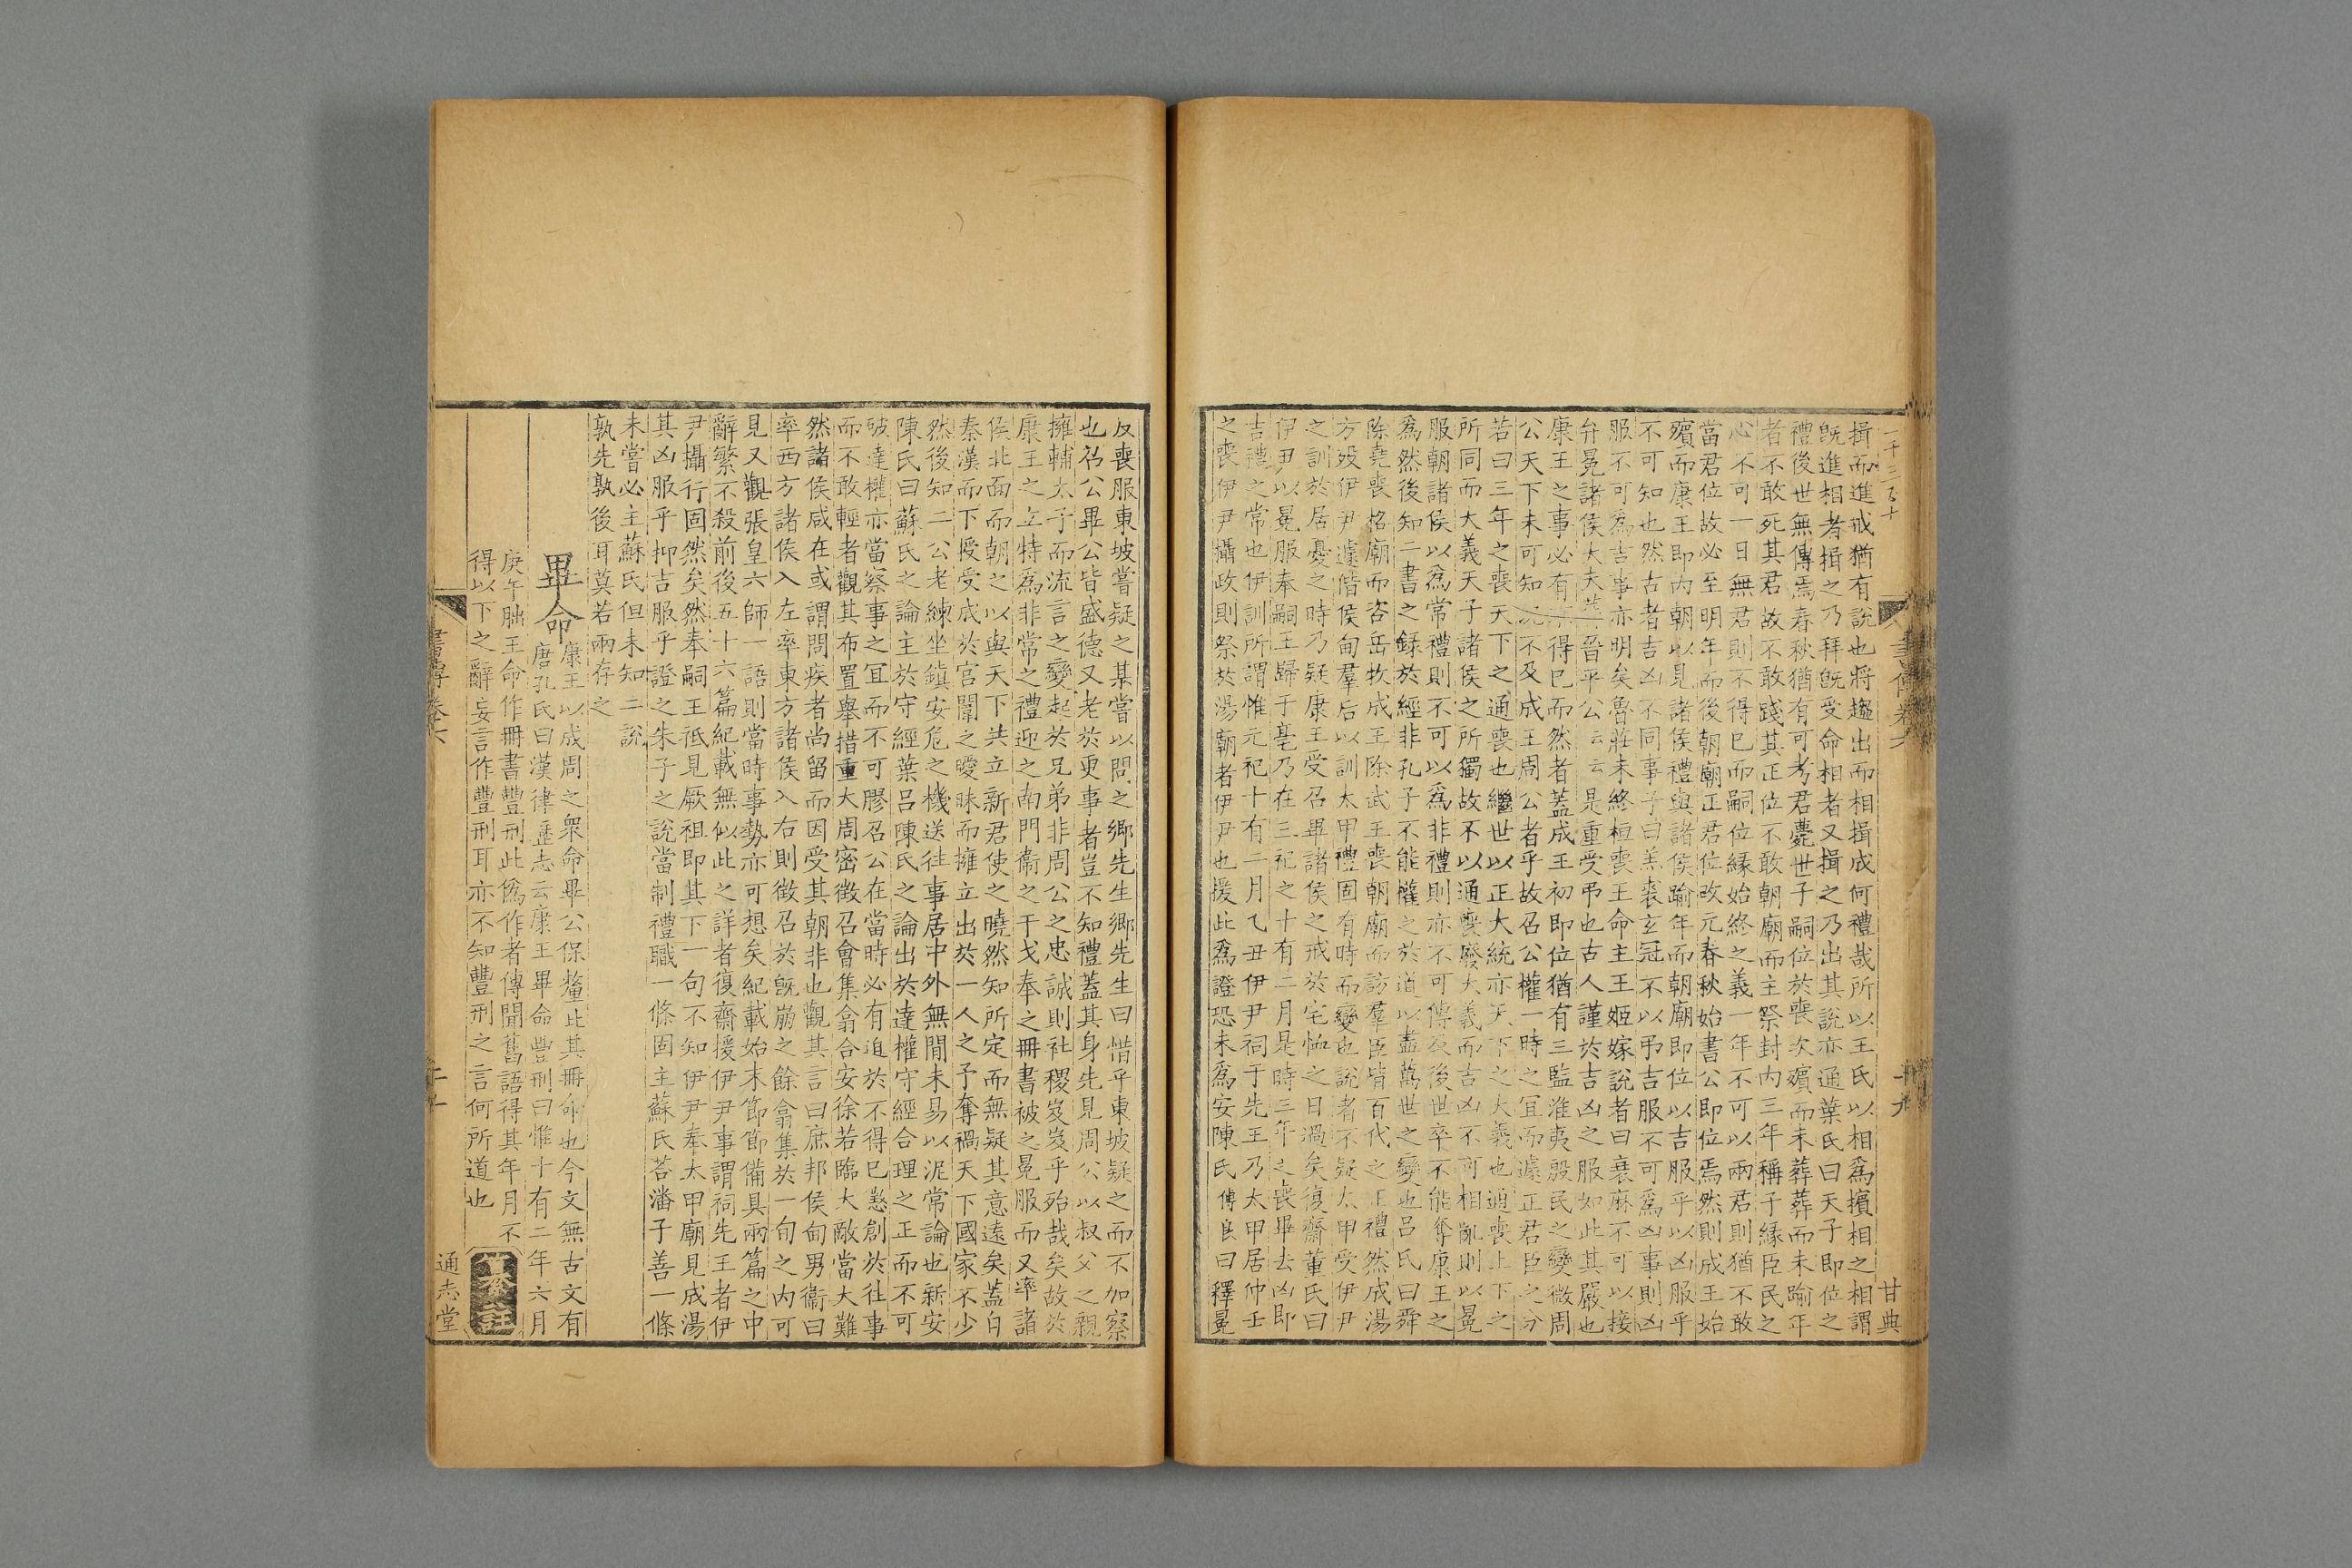 揖而進戒猶有說也將趨出而相揖成何禮哉所以王氏以相爲擯相之相謂
旣進相者揖之乃拜旣受命相者又揖之乃出其說亦通葉氏曰天子即位之
禮後世無傳焉春秋猶有可考君薨世子嗣位於喪次殯而未葬葬而未踰年
者不敢死其君故不敢踐其正位不敢朝廟而主祭封內三年稱子緣臣民之
心不可一日無君則不得巳而嗣位緣始終之義一年不可以兩君則猶不敢
當君位故必至明年而後朝廟正君位改元春秋始書公即位焉然則成王始
殯而康王即內朝以見諸侯禮與諸侯踰年而朝廟即位以吉服乎以凶服乎
不可知也然古者吉凶不同事子曰羔裘玄冠不以弔吉服不可爲凶事則凶
服不可爲吉事亦明矣魯莊未終桓喪王命主王姬嫁說者曰衰麻不可以接
弁冕諸侯大夫葬晉平公云云是重受弔也古人謹於吉凶之服如此其嚴也
康王之事必有得巳而然者蓋成王初即位猶有三監淮夷殷民之變微周
公天下未可知況不及成王周公者乎故召公權一時之宜而遽正君臣之分
若曰三年之喪天下之通喪也繼世以正大統亦天下之大義也通喪上下之
所同而大義天子諸侯之所獨故不以通喪廢大義而吉凶不可相亂則以冕
服朝諸侯以爲常禮則不可以爲非禮則亦不可傳及後世卒不能奪康王之
爲然後知二書之録於經非孔子不能權之於道以盡萬世之變也吕氏曰舜
除堯喪格廟而咨岳牧成王除武王喪朝廟而訪羣臣皆百代之正禮然成湯
方歿伊尹遽偕侯甸羣后以訓太甲禮固有時而變也說者不疑太甲受伊尹
之訓於居憂之時乃疑康王受召畢諸侯之戒於宅恤之日過矣復齋董氏曰
伊尹以冕服奉嗣王歸于亳乃在三祀之十有二月是時三年之喪畢去凶即
吉禮之常也伊訓所謂惟元祀十有二月乙丑伊尹祠于先王乃太甲居仲壬
之喪伊尹攝政則祭於湯廟者伊尹也援此爲證恐未爲安陳氏傅良曰釋冕
甘典
反喪服東坡嘗疑之某嘗以問之鄉先生鄉先生曰惜乎東坡疑之而不加察
也召公畢公皆盛德又老於更事者豈不知禮蓋其身先見周公以叔父之親
擁輔太子而流言之變起於兄弟非周公之忠誠則社稷岌岌乎殆哉矣故於
康王之立特爲非常之禮迎之南門衞之干戈奉之冊書被之冕服而又率諸
侯北面而朝之以與天下共立新君使之曉然知所定而無疑其意遠矣蓋自
秦漢而下授受成於宫闈之曖昧而擁立出於一人之予奪禍天下國家不少
然後知二公老練坐鎮安危之機送往事居中外無閒未易以泥常論也新安
陳氏曰蘇氏之論主於守經葉吕陳氏之論出於達權守經合理之正而不可
破達權亦當察事之宜而不可膠召公在當時必有迫於不得巳懲創於往事
而不敢輕者觀其布置舉措重大周密徵召會集翕合安徐若臨大敵當大難
然諸侯咸在或謂問疾者尚留而因受其朝非也觀其言曰庶邦侯甸男衞曰
率西方諸侯入左率東方諸侯入右則徵召於旣崩之餘翕集於一旬之內可
見又觀張皇六師一語則當時事勢亦可想矣紀載始末節節備具兩篇之中
辭繁不殺前後五十六篇紀載無似此之詳者復齋援伊尹事謂祠先王者伊
尹攝行固然矣然奉嗣王祗見厥祖即其下一句不知伊尹奉太甲廟見成湯
其凶服乎抑吉服乎證之朱子之說當制禮職一條固主蘇氏荅潘子善一條
未嘗必主蘇氏但未知二說
孰先孰後耳莫若兩存之
畢命 康王以成周之衆命畢公保釐此其冊命也今文無古文有
唐孔氏曰漢律厤志云康王畢命豐刑曰惟十有二年六月
庚午朏王命作冊書豐刑此僞作者傳聞舊語得其年月不
得以下之辭妄言作豐刑耳亦不知豐刑之言何所道也
纂註
書傳卷六
通志堂